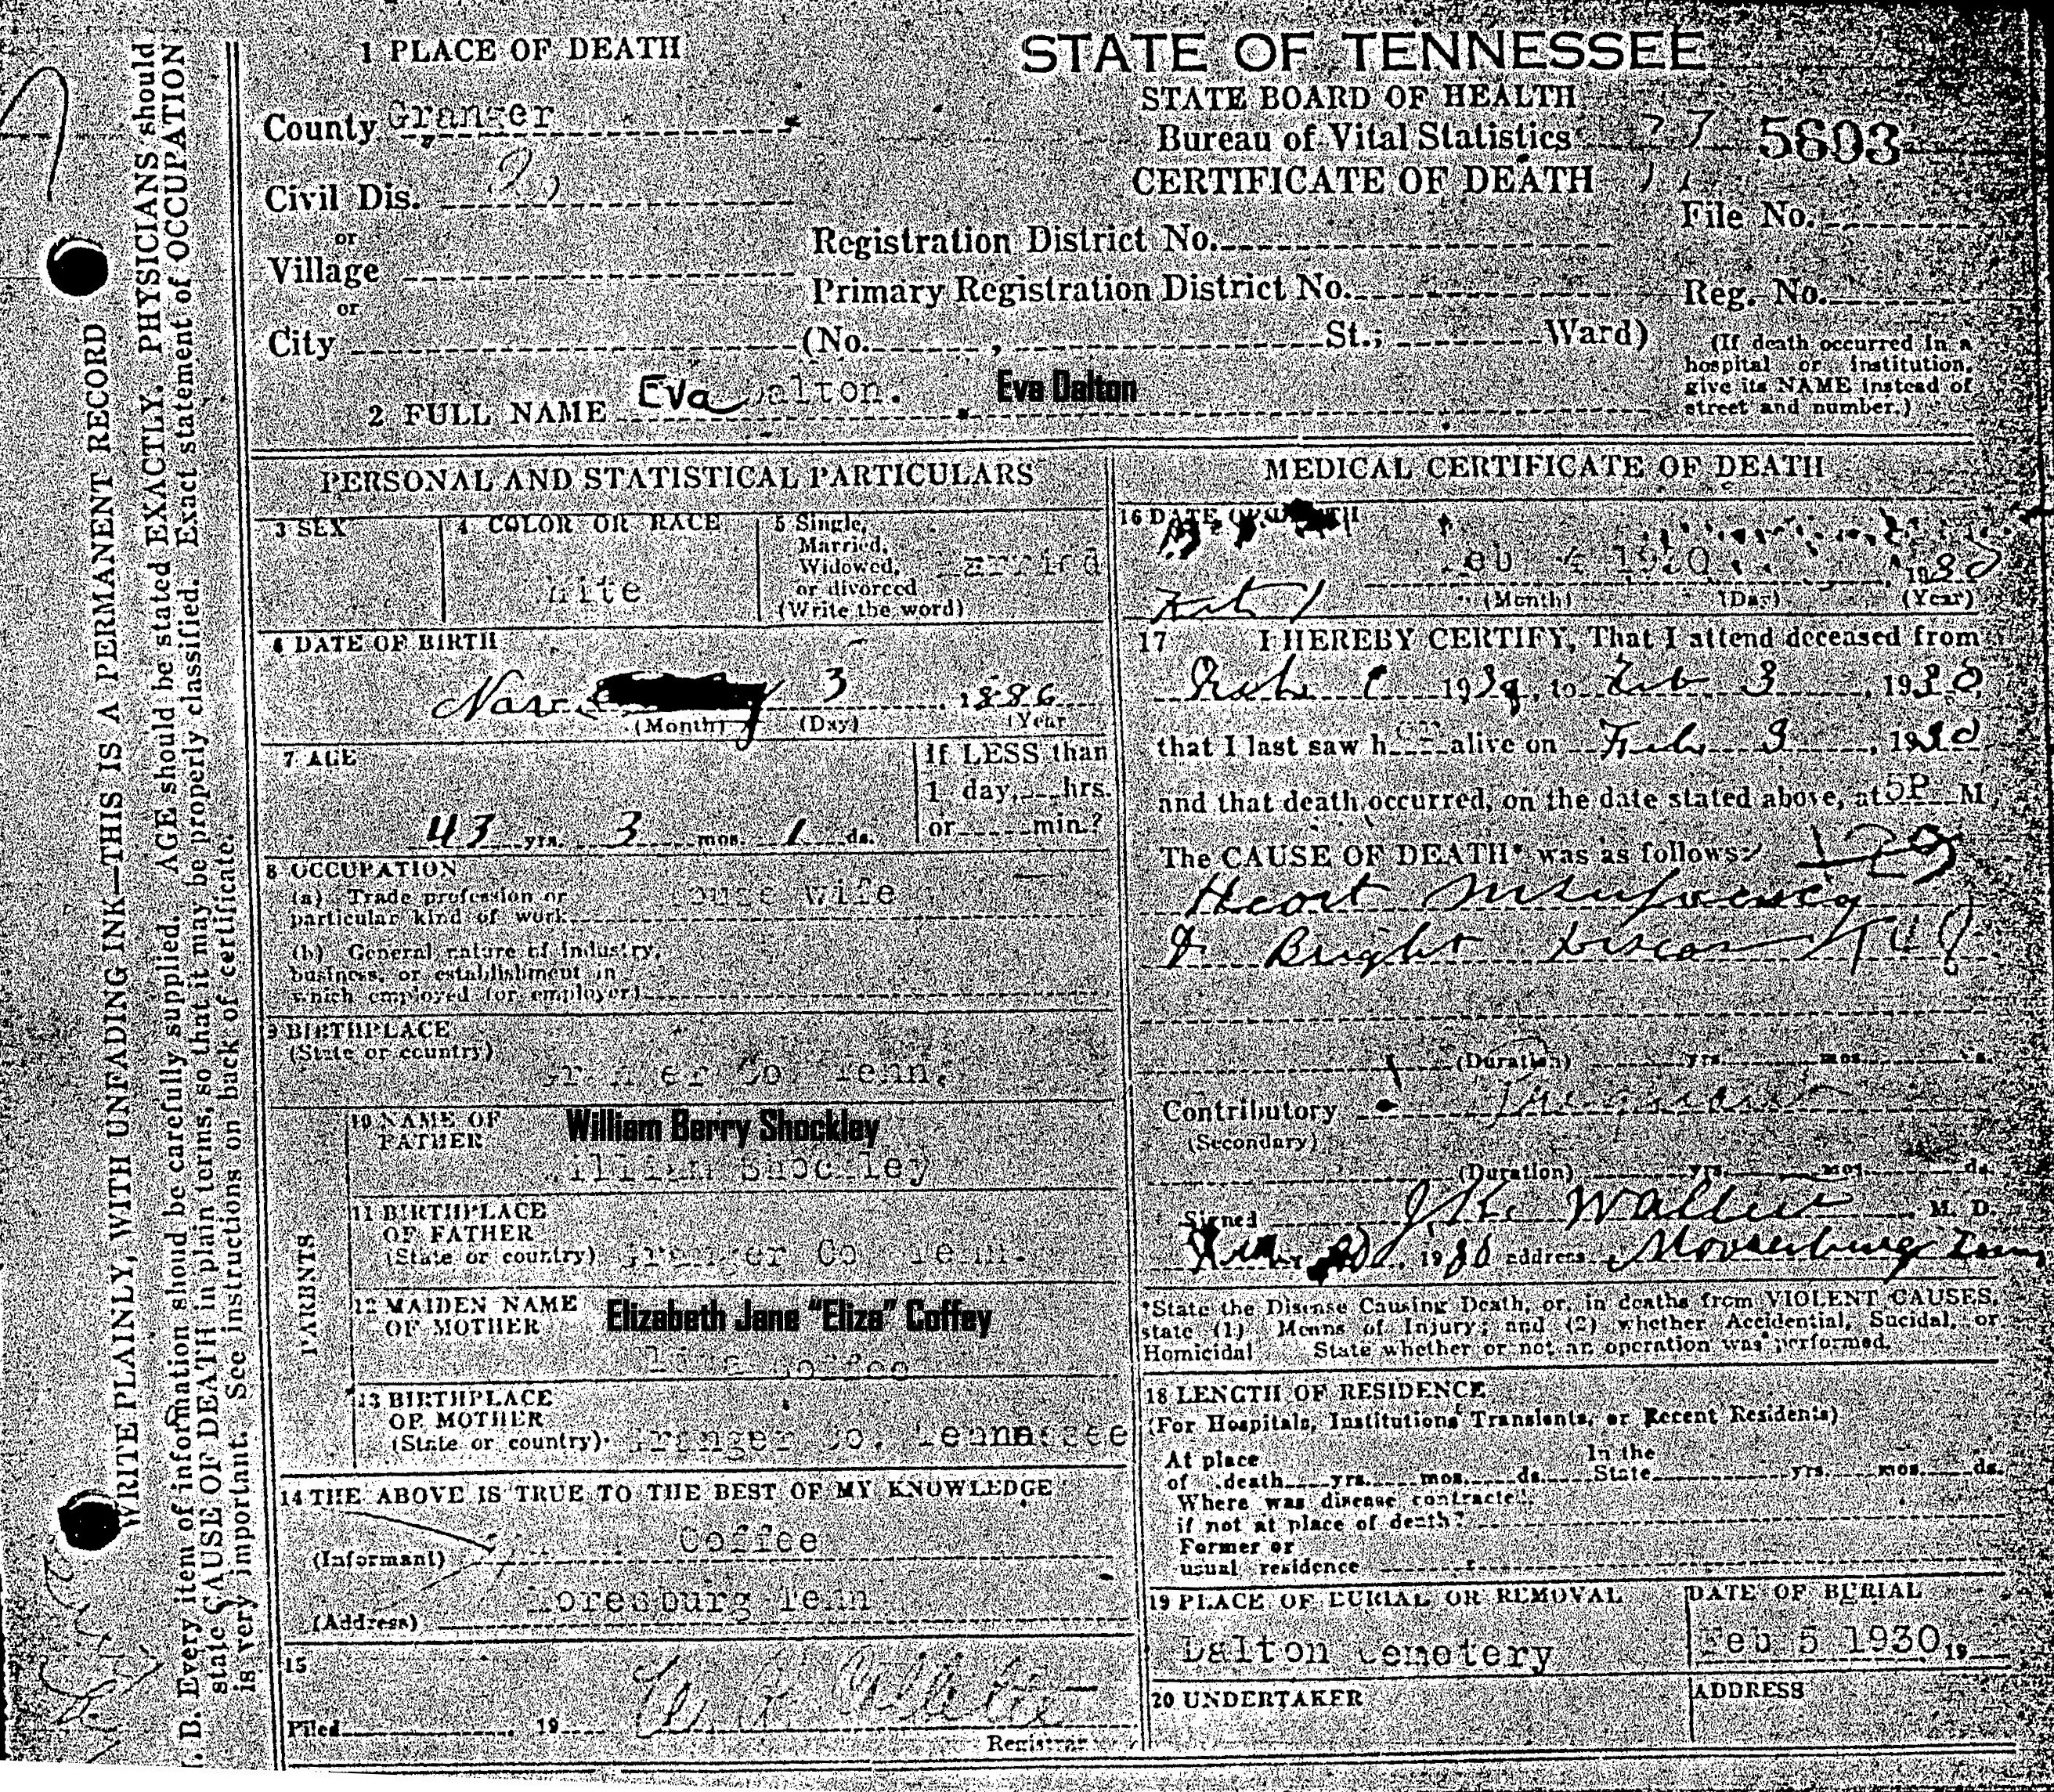 WRITE PLAINLY, WITH UNFADING INK—THIS IS A PERMANENT RECORD
. B. Every item of information shoud be carefully supplied. AGE should be stated EXACTLY. PHYSICIANS should
state CAUSE OF DEATH in plain terms, so that it may be properly classified. Exact statement of OCCUPATION
is very important. See instructions on back of certificate.
1 PLACE OF DEATH
STATE OF TENNESSEE
STATE BOARD OF HEALTH
Bureau of Vital Statistics
CERTIFICATE OF DEATH
5603
County Granger
Civil Dis.
or
Village
or
City (No. , St.; Ward)
Registration District No.
Primary Registration District No.
File No.
Reg. No.
(If death occurred in a
hospital or institution,
give its NAME instead of
street and number.)
2 FULL NAME Eva Dalton. Eva Dalton
PERSONAL AND STATISTICAL PARTICULARS
3 SEX
4 COLOR OR RACE
White
5 Single,
Married,
Widowed,
or divorced
(Write the word)
Married
6 DATE OF BIRTH
3 1886
(Month) (Day) (Year
7 AGE
If LESS than
1 day, hrs.
or min.?
43 yrs. 3 mos. 1 ds.
8 OCCUPATION
(a) Trade profession or
particular kind of work
House wife
(b) General nature of industry,
business, or establishment in
which employed (or employer)
9 BIRTHPLACE
(State or country)
Granger Co Tenn.
PARENTS
10 NAME OF
FATHER
William Berry Shockley
William Shockley
11 BIRTHPLACE
OF FATHER
(State or country) Granger Co Tenn.
12 MAIDEN NAME
OF MOTHER
Elizabeth Jane "Eliza" Coffey
Coffee
13 BIRTHPLACE
OF MOTHER
(State or country) Granger Co. Tennessee
14 THE ABOVE IS TRUE TO THE BEST OF MY KNOWLEDGE
(Informant) Coffee
(Address) Moresburg Tenn
15
Filed , 19
Registrar
MEDICAL CERTIFICATE OF DEATH
16 DATE OF DEATH
Feb 4 1930 1930
(Month) (Day) (Year)
17 I HEREBY CERTIFY, That I attend deceased from
193 , to Feb 3 , 1930
that I last saw h alive on Feb 3 , 1930
and that death occurred, on the date stated above, at 5P M
The CAUSE OF DEATH* was as follows:
Heart
Bright
(Duration) yrs. mos. ds.
Contributory
(Secondary)
(Duration) yrs. mos. ds.
Signed M. D.
1930 address Mooresburg Tenn
*State the Disense Causing Death, or, in deaths from VIOLENT CAUSES,
state (1) Means of Injury; and (2) whether Accidential, Sucidal, or
Homicidal State whether or not an operation was performed.
18 LENGTH OF RESIDENCE
(For Hospitals, Institutions Transients, or Recent Residents)
At place In the
of death yrs. mos. ds. State yrs. mos. ds.
Where was disense contracted,
if not at place of death?
Former or
usual residence
19 PLACE OF BURIAL OR REMOVAL
Dalton Cemetery
DATE OF BURIAL
Feb 5 1930, 19
20 UNDERTAKER
ADDRESS